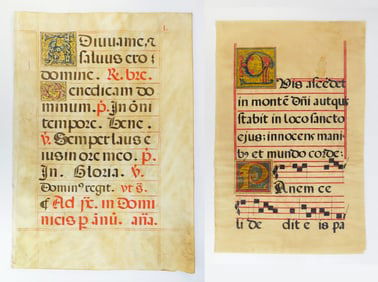 Adiuuame, &
saluus ero:
domine. ℟. bre.
Benedicam do
minum. p̃. In õni
tempore. Bene.
℣. Semper laus e
ius in ore meo. p̃.
In. Gloria. ℣.
Domin⁹ regit. ut s.
¶ Ad sx̃. in Domi
nicis p ãnũ. aña.
Quis ascẽdet
in montẽ dñi autque
stabit in loco sancto
ejus: innocens mani
b⁹ et mundo corde:
Panem ce
li de dit e is pa